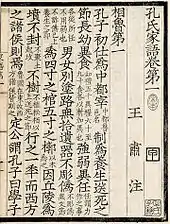 孔氏家語卷第一
王肅注
相魯第一
孔子初仕為中都宰制為養生送死之
節長幼異食強弱異任
男女別塗路無拾遺器不彫偽
為四寸之棺五寸之椁因丘陵為
墳不封不樹行之一年而西方
之諸侯則焉定公謂孔子曰學子